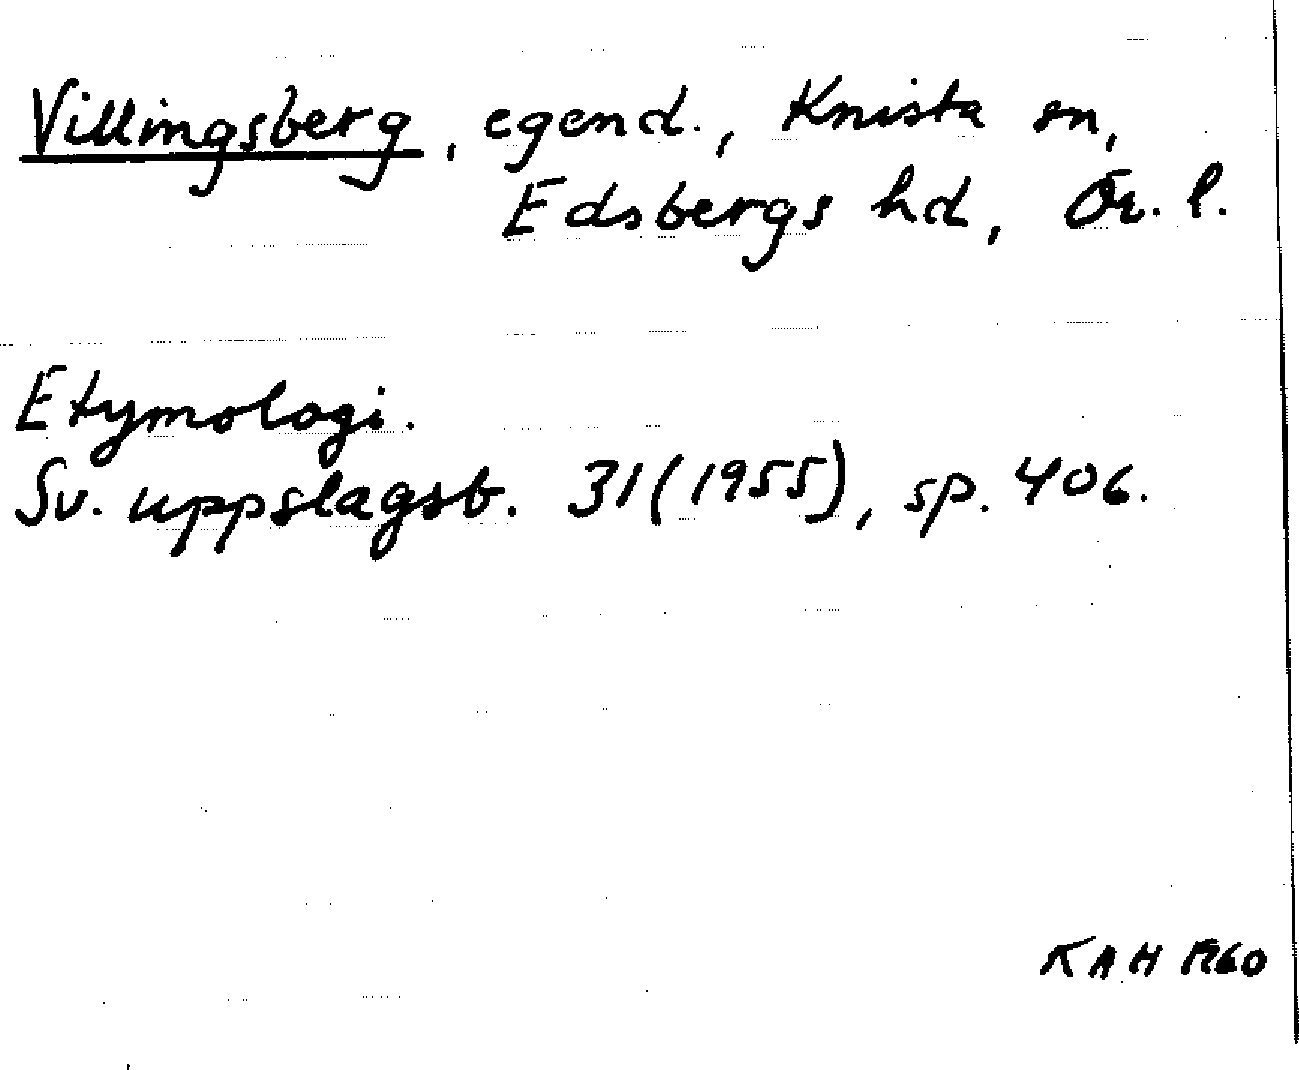 Villingsberg, egend., Knista sn,
Edsbergs hd, Ör. l.
Etymologi.
Sv. uppslagsb. 31(1955), sp. 406.
KAH 1960